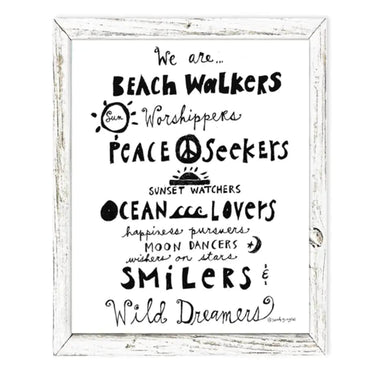 We are...
BEACH WALKERS
Sun Worshippers
PEACE SEEKERS
SUNSET WATCHERS
OCEAN LOVERS
happiness pursuers
MOON DANCERS
wishers on stars
SMILERS &
Wild Dreamers